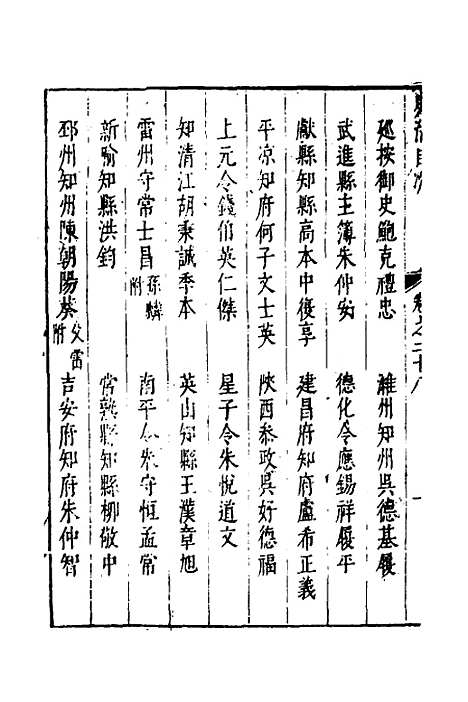 卷之二十八
廵按御史鮑克禮忠 濰州知州吳德基履
武進縣主簿朱仲安 德化令應錫祥履平
獻縣知縣高本中復亨 建昌府知府盧希正義
平凉知府何子文士英 陜西叅政吳好德福
上元令錢伯英仁傑 星子令朱悅道文
知清江胡秉誠季本 英山知縣王漢章旭
雷州守常士昌孫轔附 南平令朱守恒孟常
新喻知縣洪鈞 常熟縣知縣柳敬中
邳州知州陳朝陽葵父雷附 吉安府知府朱仲智